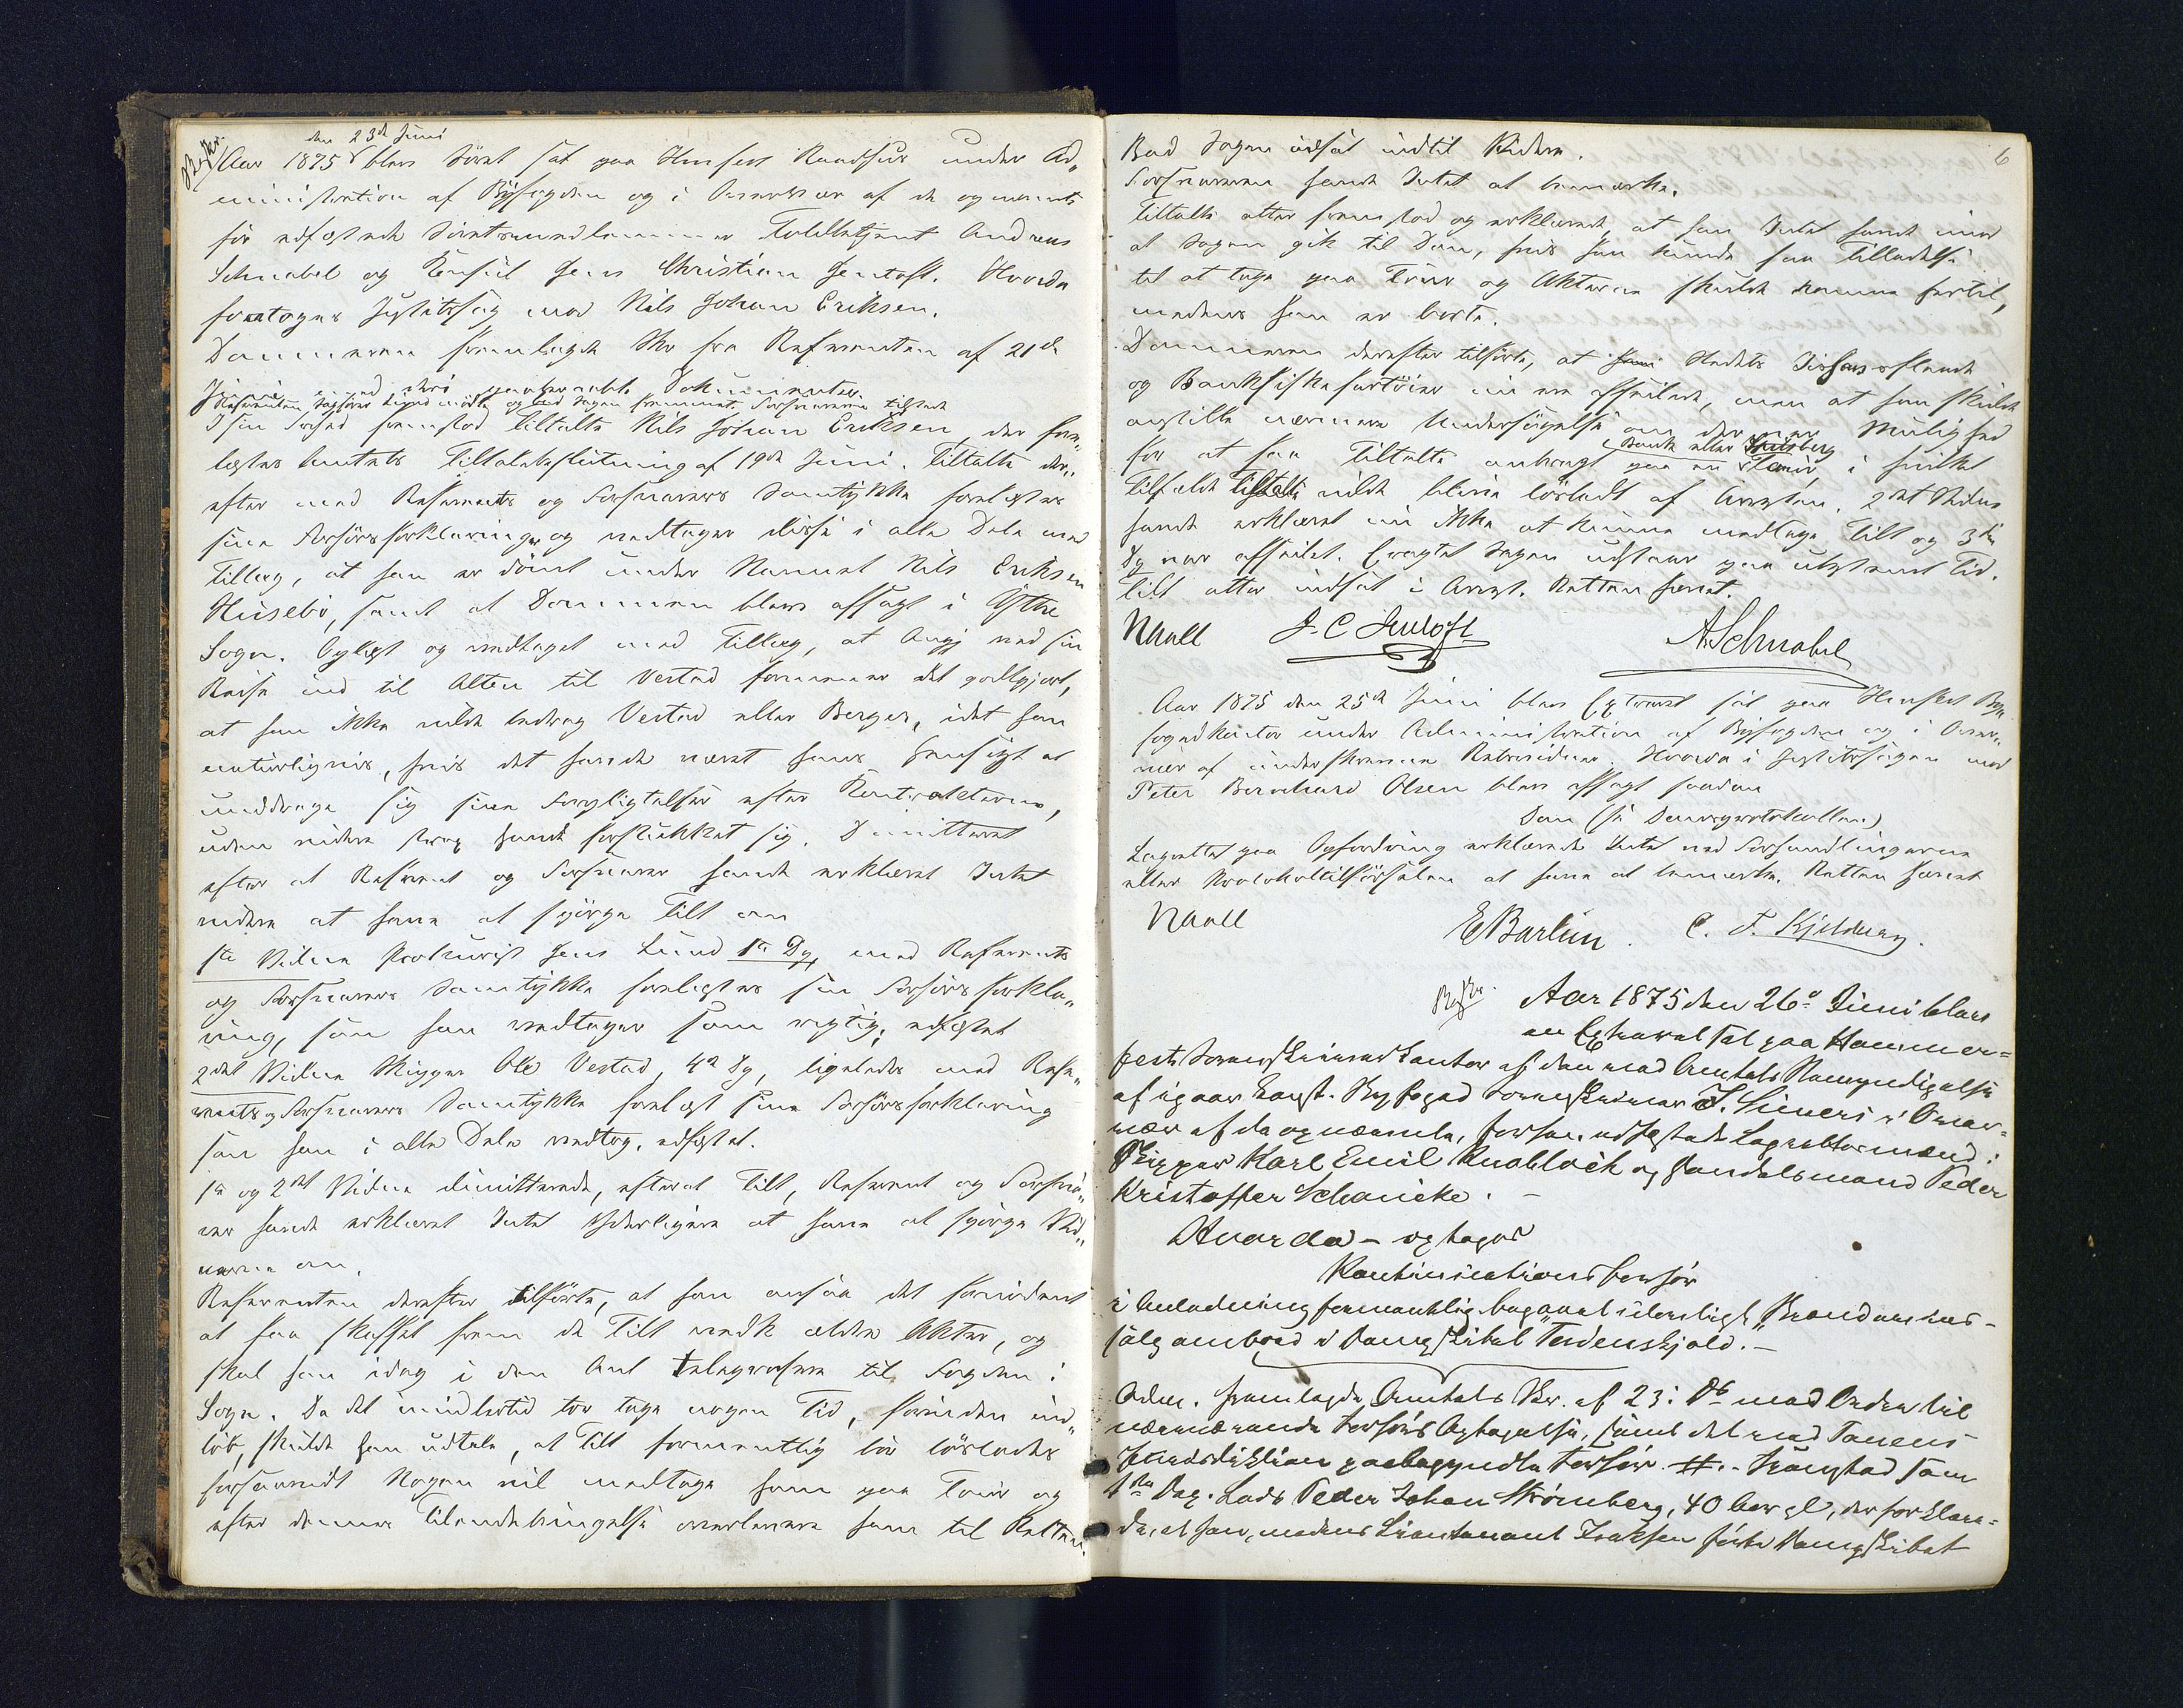 den 23de Juni
Aar 1875 blev Søret sat paa Hmfest Raadhus under Ad„
ministration af Byfogden og i Overvær af de opnævnte
før edfæstede Søretsmedlemmer Toldbetjent Andreas
Schnabel og Konsul Jens Christian Jentoft. Hvorda
foretages Justitssag mod Nils Johan Eriksen.
Dommeren fremlagde Skr fra Referenten af 21de
Juni med deri paaberaabte Dokumenter.
Referenten Sagfører Lund mødte og lod Sagen fremmet. Forsvareren tilstede
I sin Frihed fremstod Tiltalte Nils Johan Eriksen der fore„
læstes Amtets Tiltalebeslutning af 19de Juni. Tiltalte der„
efter med Referents og Forsvarers Samtykke forelæstes
sine Forhørsforklaringer og vedtager disse i alle Dele med
Tillæg, at han er dømt under Navnet Nils Eriksen
Husebø, samt at Dommen blev afsagt i Ythre
Sogn. Oplæst og vedtaget med Tillæg, at Angj ved sin
Reise ind til Alten til Vestad formener det godtgjort,
at han ikke vilde bedrage Vestad eller Berger, idet han
naturligvis, hvis det havde været hans Hensigt at
unddrage sig sine Forpligtelser efter Kontrakterne,
uden videre strax havde forstukket sig. Dimitteret
efter at Referent og Forsvarer havde erklæret Intet
videre at have at spørge Tilt om
1te Vidne Prokurist Jens Lund 1te Dg, med Referents
og Forsvarers Samtykke forelæstes sin Forhørsforkla„
ring, som han vedtager som rigtig, edfæstet
2det Vidne Skipper Ole Vestad, 4de Dg, ligeledes med Refe„
rents og Forsvarers Samtykke forelæst sine Forhørsforklaring
som han i alle Dele vedtog, edfæstet.
1te og 2det Vidne dimitterede, efterat Tilt, Referent og Forsva„
rer havde erklæret Intet yderligere at have at spørge Vid„
nerne om.
Referenten derefter tilførte, at han ansaa det fornødent
at faa skaffet frem de Tilt vedk ældre Akter, og
skal han idag i den Anl telegrafere til Fogden i
Sogn. Da det imidlertid tør tage nogen Tid, forinden ind„
løb, skulde han udtale, at Tilt formentlig bør løslades
forsaavidt Nogen vil medtage ham paa Tour og
efter dennes Tilendebringelse overlevere ham til Retten.
6
Bad Sagen udsat indtil Videre.
Forsvareren havde Intet at bemærke.
Tiltalte atter fremstod og erklærede, at han Intet havde imod
at Sagen gik til Dom, hvis han kunde faa Tilladelse
til at tage paa Tour og Akterne skulde komme hertil,
medens han er borte.
Dommeren derefter tilførte, at Stedets Ishavsflaade
og Bankfiskefartøier nu ere afseilede, men at han skulde
anstille nærmere Undersøgelse om der var Mulighed
for at faa Tiltalte anbragt paa en Bank eller Spitsberg Tour, i hvilket
Tilfælde Tiltalte vilde blive løsladt af Arresten. 2det Vidne
havde erklæret nu ikke at kunne medtage Tilt og 3die
Dg var afseilet. Eragtet Sagen udstaar paa ubestemt Tid.
Tilt atter indsat i Arrest. Retten hævet.
Naall J. C Jentoft A. Schnabel
Aar 1875 den 25de Juni blev Extraret sat paa Hmfest By„
fogedkontor under Administration af Byfogden og i Over„
vær af underskrevne Retsvidner. Hvorda i Justitssagen mod
Peter Bernhard Olsen blev afsagt saadan
Dom (se Domsprotokollen)
Lagrettet paa Opfordring erklærede Intet ved Forhandlingerne
eller Protokoltilførselen at have at bemærke. Retten hævet
Naall E Barlin. C. F. Kjeldberg.
Aar 1875 den 26de Juni blev
en Extraret sat paa Hammer=
fest Sorenskriverkontor af den ved Amtets Bemyndigelse
af igaar konst. Byfoged Sorenskriver J. Sivers i Over=
vær af de opnævnte, forhen edfæstede Lagrettemænd:
Skipper Karl Emil Knobloch og Handelsmand Peder
Kristoffer Schancke. —
Hvorda — optoges
Kontinuationsforhør
i Anledning formentlig begaaet ulovligt Brændevins-
salg ombord i Dampskibet "Tordenskjold." —
Adm. fremlagde Amtets Skr. af 23. ds med Ordre til
nærværende Forhørs Optagelse, samt det ved Tanens
Jurisdiktion paabegyndte Forhør. —. Fremstod som
1ste Dep. Lods Peder Johan Strømberg, 40 Aar gl, der forklare=
de, at han, medens Lieutenant Isaksen førte Dampskibet